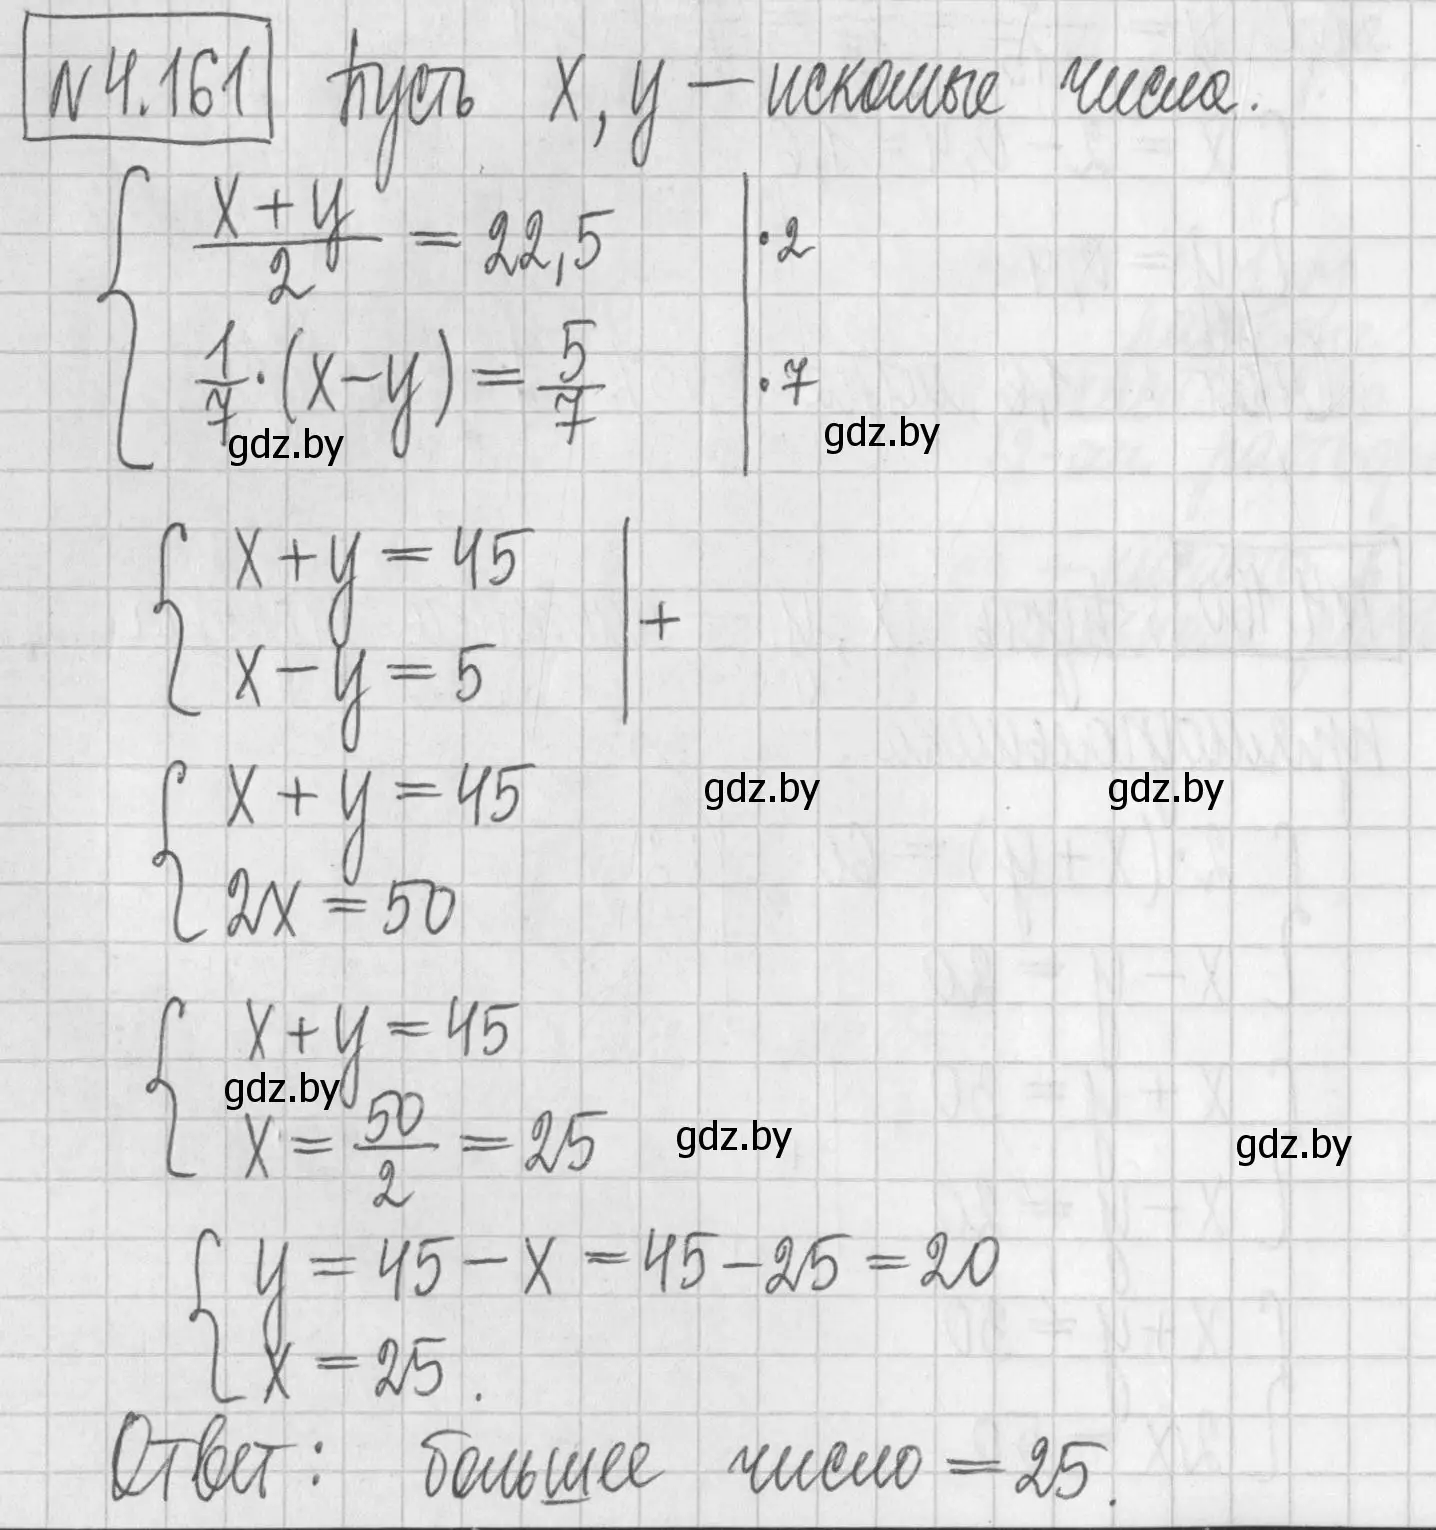 N 4.161 Пусть x, y — искомые числа.
{ (x+y)/2 = 22,5 | ·2
1/7·(x−y) = 5/7 | ·7
gdz.by gdz.by
{ x+y = 45
x−y = 5 | +
{ x+y = 45 gdz.by gdz.by
2x = 50
{ x+y = 45
gdz.by
x = 50/2 = 25 gdz.by gdz.by
{ y = 45 − x = 45 − 25 = 20
x = 25.
Ответ: большее число = 25.